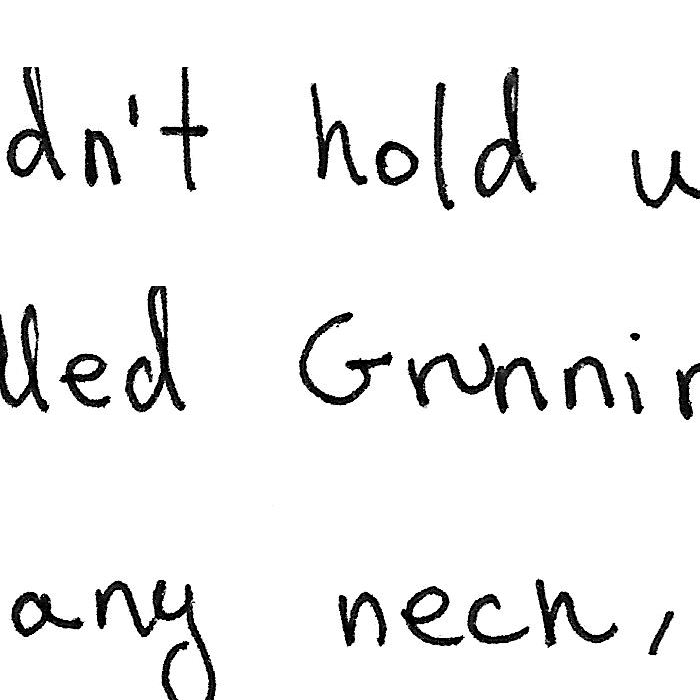 dn't hold u
lled Grunnin
any neck,